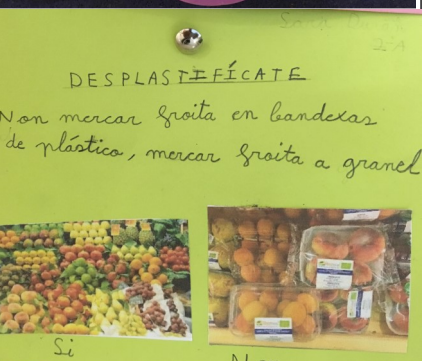 2ºA
DESPLASTIFÍCATE
Non mercar froita en bandexas
de plástico, mercar froita a granel
Si